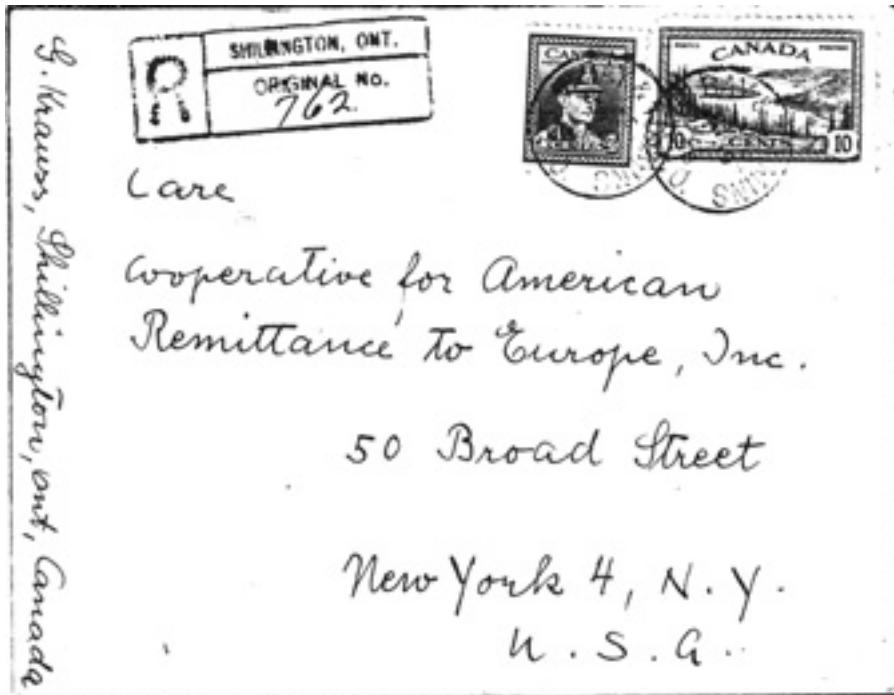 G. Krauss, Shillington, Ont, Canada
R
SHILLINGTON, ONT.
ORIGINAL No.
762
CANADA
CANADA
10 CENTS 10
Care
Cooperative for American
Remittance to Europe, Inc.
50 Broad Street
New York 4, N.Y.
U.S.A.